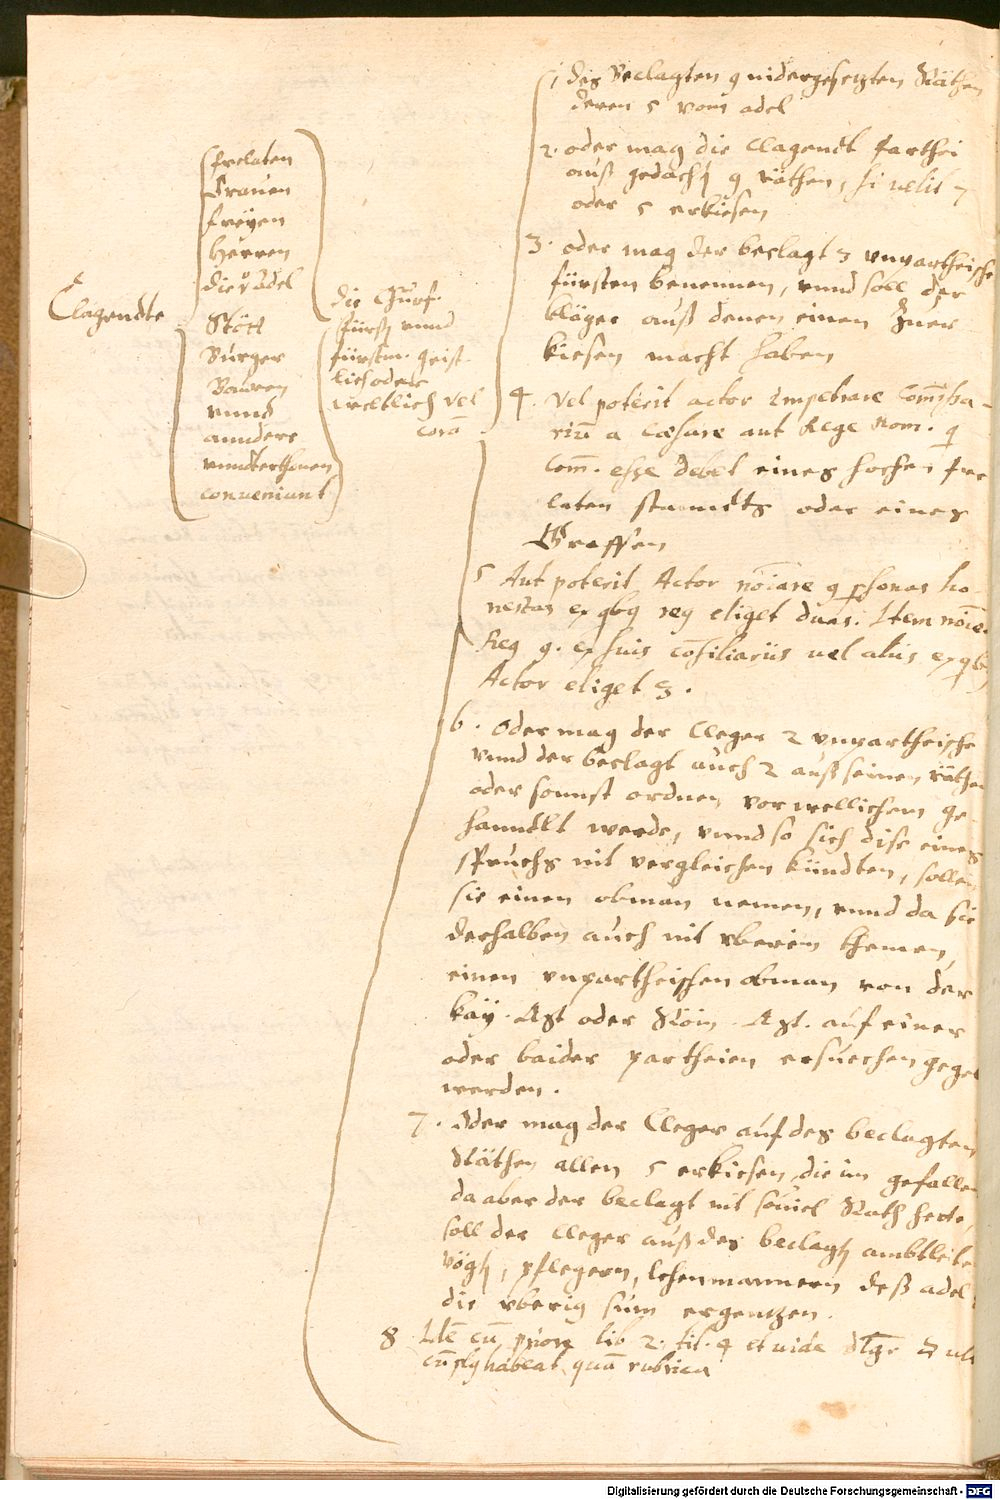 Clagendte
Prelaten
Grauen
freyen
Herren
die v adel
Stött
Burger
Bauren
vnnd
anndere
vnndterthonen
conueniunt
die Churf.
fürst vnnd
fürsten. geist
lich oder
weltlich vel
corā
1 des Beclagten 9 nidergesetzten Räthen
deren 5 vom adel
2. oder mag die Clagendt Parthei
auß gedacht 9 räthen, si uelit 7
oder 5 erkiesen
3. oder mag der beclagt 3 vnpartheische
fürsten benennen, vnnd soll der
kläger auß denen einen Zuer
kiesen macht haben
4. vel poterit actor impetrare Com̄issa-
riū a Cæsare aut Rege Rom. q
Com̄. esse debet eines hochen pre
laten stanndts oder eines
Graffen
5 Aut poterit Actor nōiare 9 psonas ho-
nestas ex qbq reg eliget duas. Item nōie.
Reg 9. ex suis cōsiliariis uel aliis ex qb
Actor eliget 3.
6. Oder mag der Cleger 2 vnpartheische
vnnd der beclagt auch 2 auß seinen räthen
oder sonnst ordnen vor wellichem ge-
hanndlt werde, vnnd so sich dise eines
spruchs nit vergleichen kündten, sollen
sie einen obman nemen, vnnd da sie
derhalben auch nit vberein khemen,
einen vnpartheischen obman von der
kay. Mgt oder Röm. Mgt. auf einer
oder baider partheien ersuechen gege
werden.
7. Oder mag der Cleger auf des beclagten
Räthen allen 5 erkiesen die im gefallen
da aber der beclagt nit souiel Räth hete,
soll der Cleger auß des beclagtn ambtleite
vögtn, pflegern, lehenmannern deß adel
die vberig sum ergentzen.
8 Itē cū priore lib 2. tit. 4 et uide
habeat quā rubrica
Digitalisierung gefördert durch die Deutsche Forschungsgemeinschaft - DFG